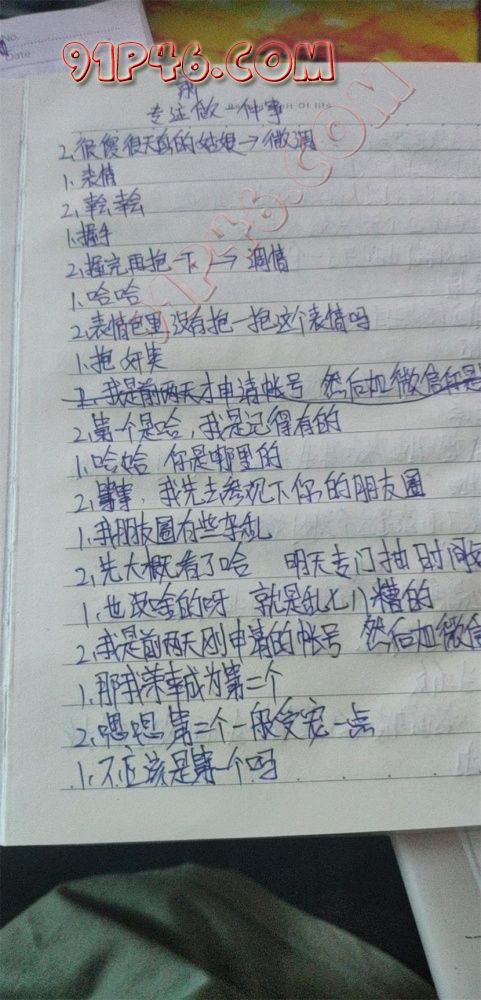 No.
Date
91P46.COM
专注做一件事
2、很傻很天真的姑娘→微调
1、表情
2、幸会幸会
1、握手
2、握完再抱一下→调情
1、哈哈
2、表情包里没有抱一抱这个表情吗
1、抱
2、我是前两天才申请帐号 然后加微信你是
2、第一个是哈,我是记得有的
1、哈哈 你是哪里的
2、我先去参观下你的朋友圈
1、我朋友圈有些杂乱
2、先大概看了哈 明天专门抽时间
1、也没啥的呀 就是乱七八糟的
2、我是前两天刚申请的帐号 然后加微信
1、那我荣幸成为第二个
2、嗯嗯 第二个一般受宠一点
1、不应该是第一个吗
91P46.COM